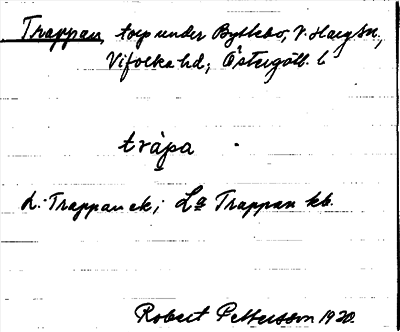 Trappan, torp under Bytlebo, V. Harg sn.,
Vifolka hd; Östergötl. l
tràpa
L. Trappan ek; La Trappan kb.
Robert Pettersson 1930.